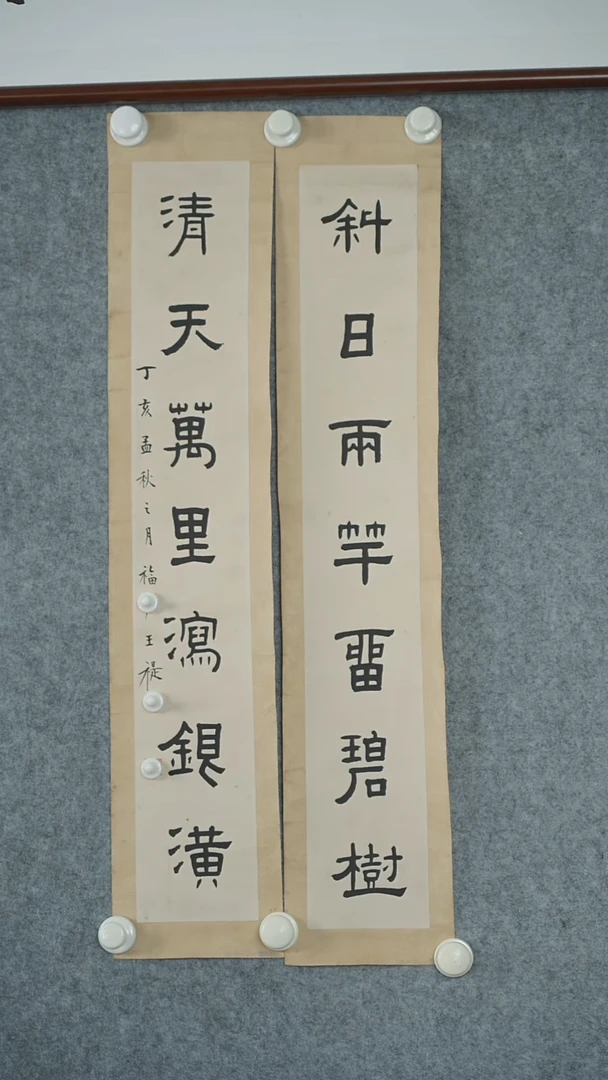 斜日兩竿畱碧樹
清天萬里瀉銀潢
丁亥孟秋之月 福 王禔